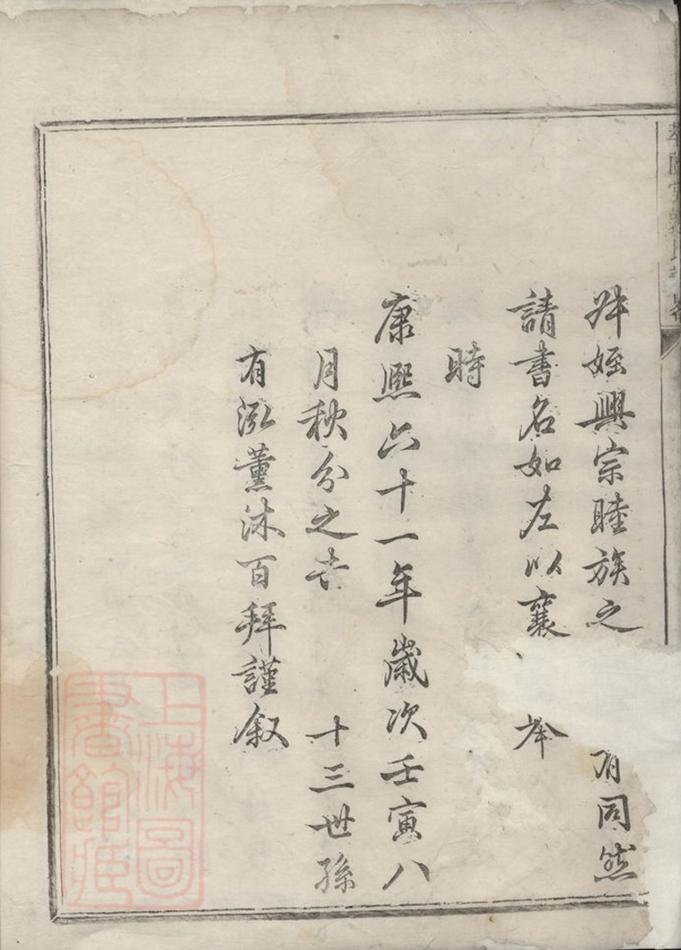 姪興宗睦族之 有同然
請書名如左以襄 举
時
康熙六十一年歲次壬寅八
月秋分之吉 十三世孫
有泓薰沐百拜謹叙
上海圖書館藏